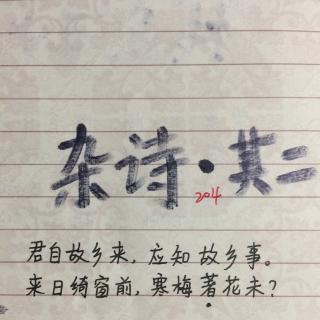 杂诗·其二
204
君自故乡来，应知故乡事。
来日绮窗前，寒梅著花未？